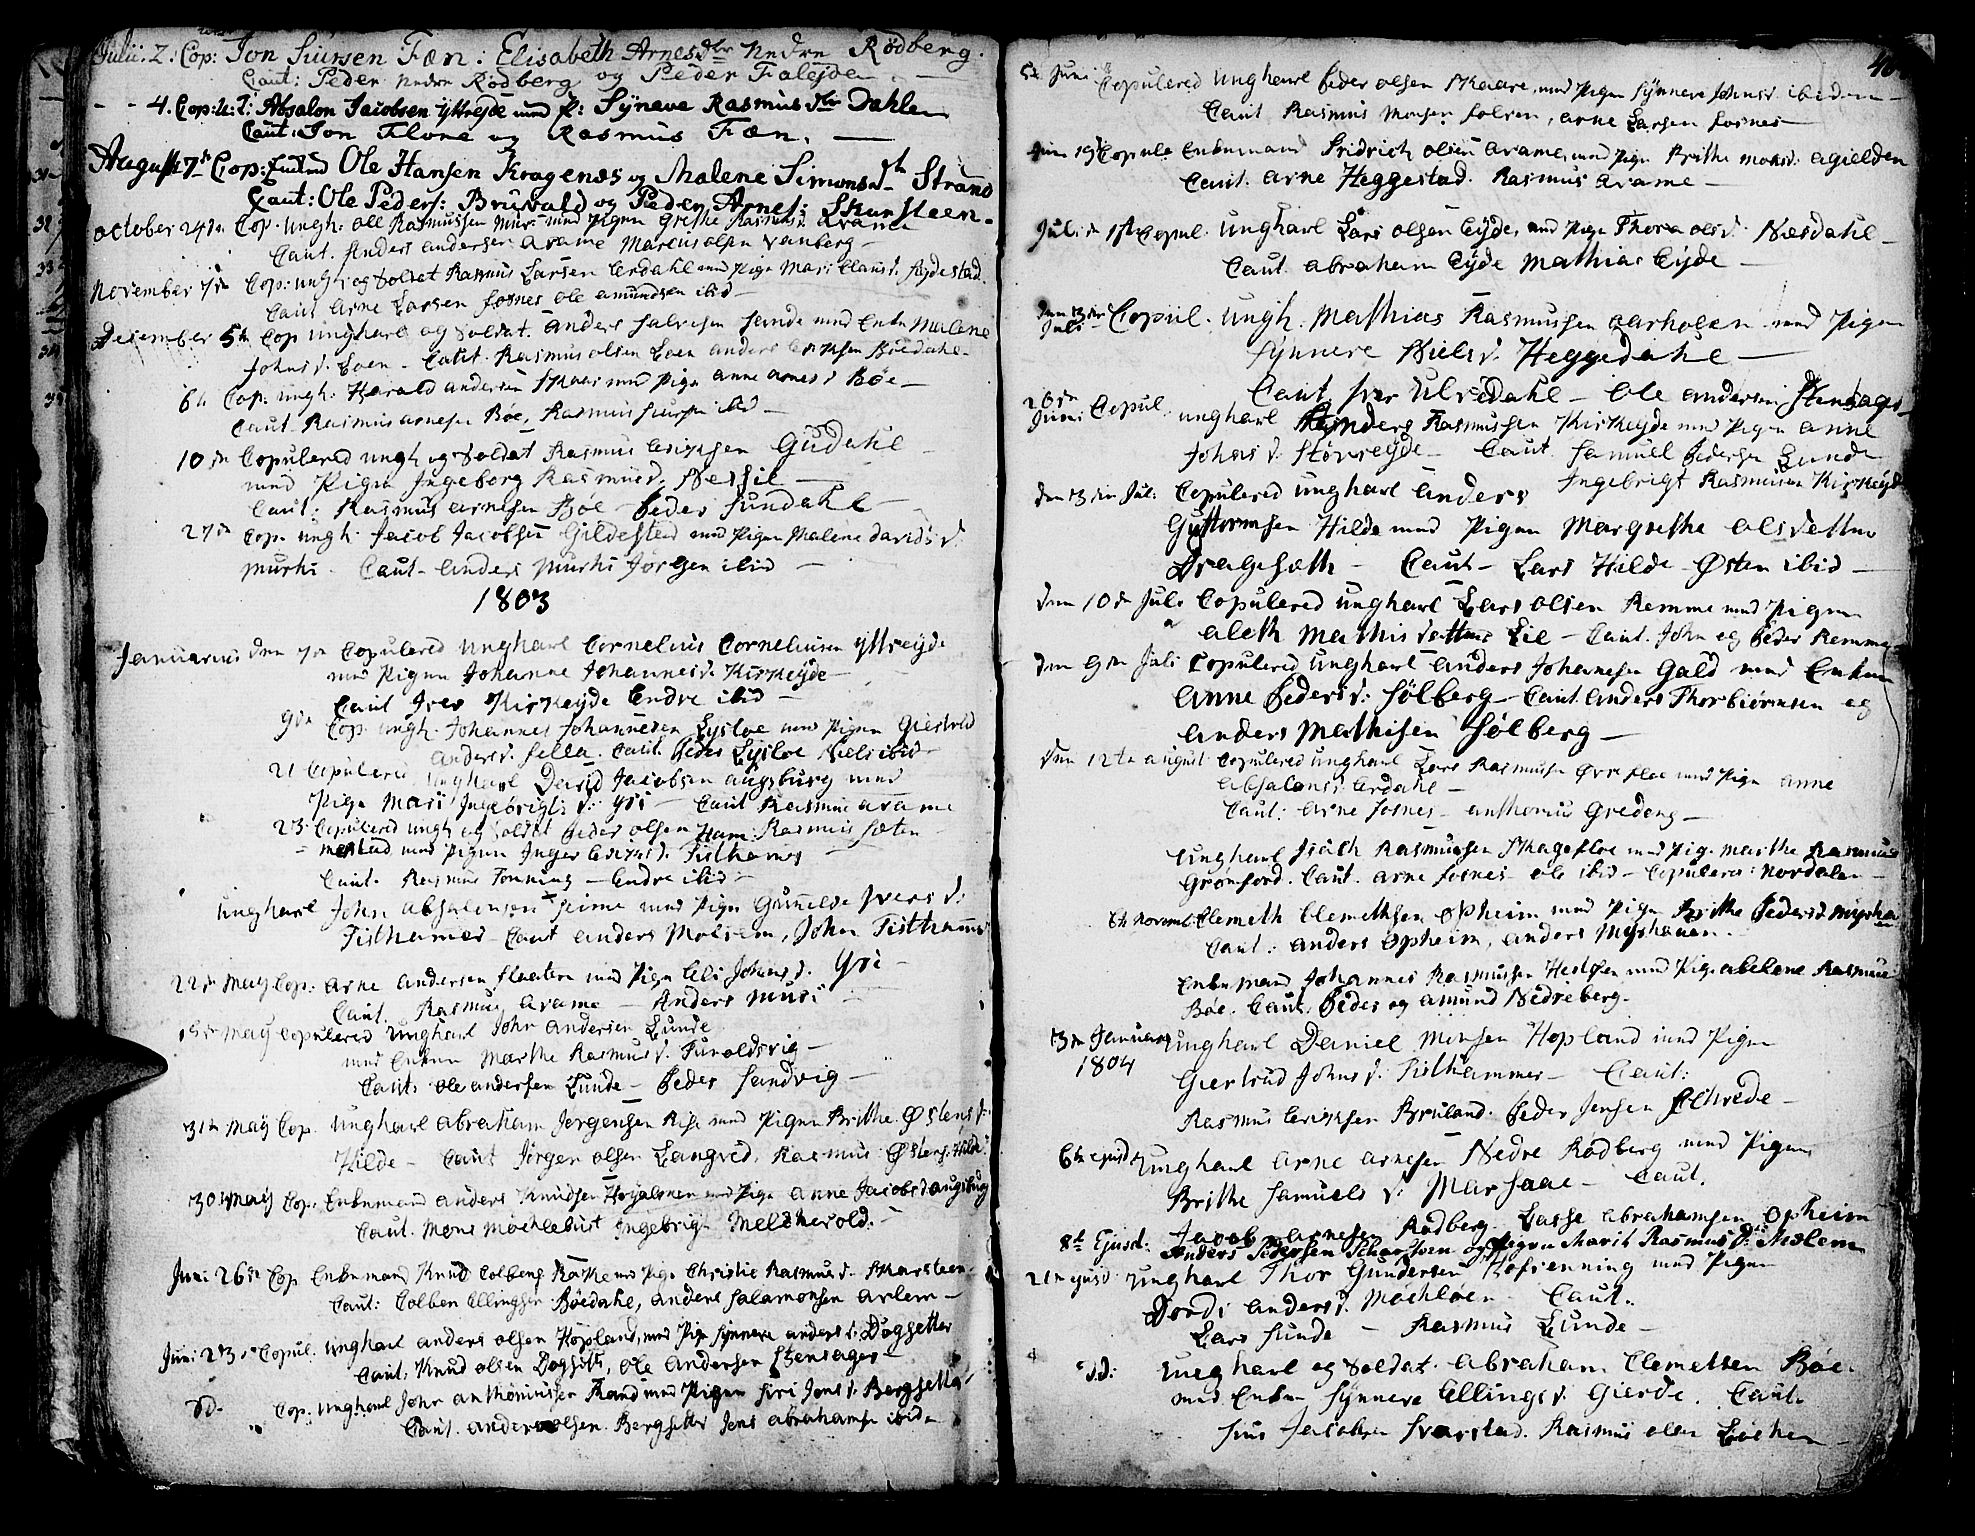 Julii: 2: Cop: Jon Siursen Fæn: Elisabeth Arnesdtr Nedre Rødberg.
Caut: Peder Nedre Rødberg og Peder Faleyde
4. Cop: u: k: Absalon Jacobsen yttreyde med p: Synave Rasmusdtr Dahlen
Caut: Jon Flore og Rasmus Fæn.
August 7de Cop: Enkmd Ole Hansen Kragenæs og Malene Simonsdtr Strand
Caut: Ole Peders: Bruvald og Peder Arnes: Skarsteen
October 24de Cop. ungk: Ole Rasmussen Muri med Pigen Grethe Rasmusd: Avame
Caut. Anders Andersen Avame Marcus olsen Vanberg
November 7de Cop: ungk: og soldat Rasmus Larsen Erdahl med Pigen Mari Clausd: Rydestad
Caut Arne Larsen Fosnes ole amundsen ibid
December 5te Cop ungkarl og soldat. Anders Salvesen Sande med Enken Malene
Johnsd. Loen - Caut. Rasmus olsen Loen anders Erichsen Bøedahl
6te Cop. ungk. Harald andersen Skaar med Pigen anne arnesd Bøe
Caut. Rasmus arnesen Bøe, Rasmus Siursen ibid
10de Copulered ungk og soldat Rasmus Erichsen Gudahl
med Pigen Ingeborg Rasmusd. Nessit
Caut: Rasmus arnesen Bøe Peder Sundahl
27de Cop. ungk. Jacob Jacobsen Gildestad med Pigen Malene Davidsd.
Murki. Caut. anders Murki Jørgen ibid
1803
Januarius den 7de Copulered ungkarl Cornelius Corneliusen yttreyde
med Pigen Johanne Johannesd. Kirkeyde
Caut Iver Kirkeyde Endre ibid
9de Cop. ungk. Johannes Johannesen Lysloe med Pigen Giertrud
Andersd. Sella. Caut. Peder Lysloe Niels ibid
21 Copulered ungkarl David Jacobsen augsburg med
Pigen Mari Ingebrigtsd: yri - Caut Rasmus avame
23. Copulered ungk og soldat Peder olsen Ham: Rasmus Sæten
mestad med Pigen Inger Erichsd. Tisthamer
Caut. Rasmus Tonning - Endre ibid
ungkarl John absalonsen Heime med Pigen Gunnelde Iversd:
Tisthamer - Caut anders Molsem, John Tisthamer
22de May Cop: arne andersen Flaaten med Pigen Eli Johnsd. Yri
Caut. Rasmus Avame - Anders Muri
15de May Copulered ungkarl John andersen Lunde
med Enken Marthe Rasmusd. Furoldsvig
Caut: ole andersen Lunde - Peder Sandvig
31te May Cop. ungkarl abraham Jørgensen Rise med Pigen Brithe Østensd:
Hilde - Caut Jørgen olsen Langved. Rasmus Østens: Hilde
30te May Cop. Enkemand anders Knudsen Høyalmen med Pigen anne Jacobsd augsburg
Caut. Mons Mæchlebust Ingebrigt Melchevold.
Juni 26de Cop Enkemand Knud Colbens Rake med Pigen Christie Rasmusd. Skarsteen
Caut: Colben Ellingsen Bøedahl, anders Salamonsen Avlem
Juni 23de Copul. ungkarl anders olsen Hopland, med Pigen Synneve andersd. Dogsetter
Caut. Knud olsen Dogseth, ole Andersen Stensager
Dd. Cop. ungkarl John anthoniussen Rand med Pigen Siri Jensd. Bergsetter
Caut. anders olsen. Bergsetter Jens abrahamsen ibid
40
5te Juni Copulered ungkarl Peder olsen Skaare, med Pigen Synneve Johnsd. ibidem
Caut Rasmus Monsen Solsen, arne Larsen Fosnes
Juni 19de Copule Enkemand Fridrich olsen avame, med Pigen Brithe Monsd: agielden
Caut. Arne Heggestad. Rasmus avame
Juli 1ste Copul. ungkarl Lars olsen Eyde, med Pigen Thora olsd. Næsdahl
Caut. abraham Eyde Mathias Eyde
den 3die Juli Copul. ungk. Mathias Rasmussen aarholen med Pigen
Synneve Nielsd. Heggedahl
Caut. Iver Ulvedahl - ole andersen Stensager
26de Juni Copul. ungkarl Anders Rasmussen Kirkeyde med Pigen anne
Johnsd: Storreyde - Caut. Samuel Pedersen Lunde
Ingebrigt Rasmusen Kirkeyde
den 3die Juli Copulered ungkarl anders
Guttormsen Hilde med Pigen Margrethe olsdetter
Drageseth - Caut - Lars Hilde Østen ibid
den 10de Juli Copulered ungkarl Lars olsen Remme med Pigen
aleth Mathisdatter Lie - Caut. John og Peder Remme
den 9de Juli Copulered ungkarl anders Johanesen Gald med Enken
anne Pedersd: Sølberg - Caut. anders Thorbiørnsen og
anders Mathisen Sølberg
den 12te august Copulered ungkarl Lars Rasmusen Øvrefloe med Pigen anne
absalonsd. Erdahl
Caut: arne Fosnes - anthonius Gredeng
ungkarl Isach Rasmussen Skagefloe med Pig. Marthe Rasmus
Grønford. Caut. arne Fosnes - ole ibid - Copulerer: Nordalen
6te Novembr. Clemeth Clemethsen opheim med Pigen Brithe Pedersd Myrha
Caut: anders opheim, anders Myrhauen.
Enkemand Johannes Rasmussen Hestgen med Pig. abelone Rasmus
Bøe. Caut. Peder og amund Nedreberg.
3de Januari 1804 ungkarl Daniel Monsen Hopland med Pigen
Giertrud Johnsd: Tisthammer - Caut:
Rasmus Erichsen Bruland. Peder Jensen Schrede
6te ejusd ungkarl arne arnesen Nedre Rødberg med Pigen
Brithe Samuelsd: Marsaae - Caut.
Jacob arnesen Rødberg. Lasse abrahamsen Opheim
8te Ejusd: Anders Pedersen Scharstein og Pigen Marit Rasmusdtr: Molem
21de ejusd ungkarl Thor Gundersen Hofrenning med Pigen
Dordi andersd. Mæchloen - Caut.
Lars Sunde - Rasmus Lunde
Dd. ungkarl og soldat. Abraham Clemetsen Bøe.
med Enken Synneve Ellingsd. Gierde. Caut.
Jens Jacobsen Svarstad. Rasmus olsen Løchen